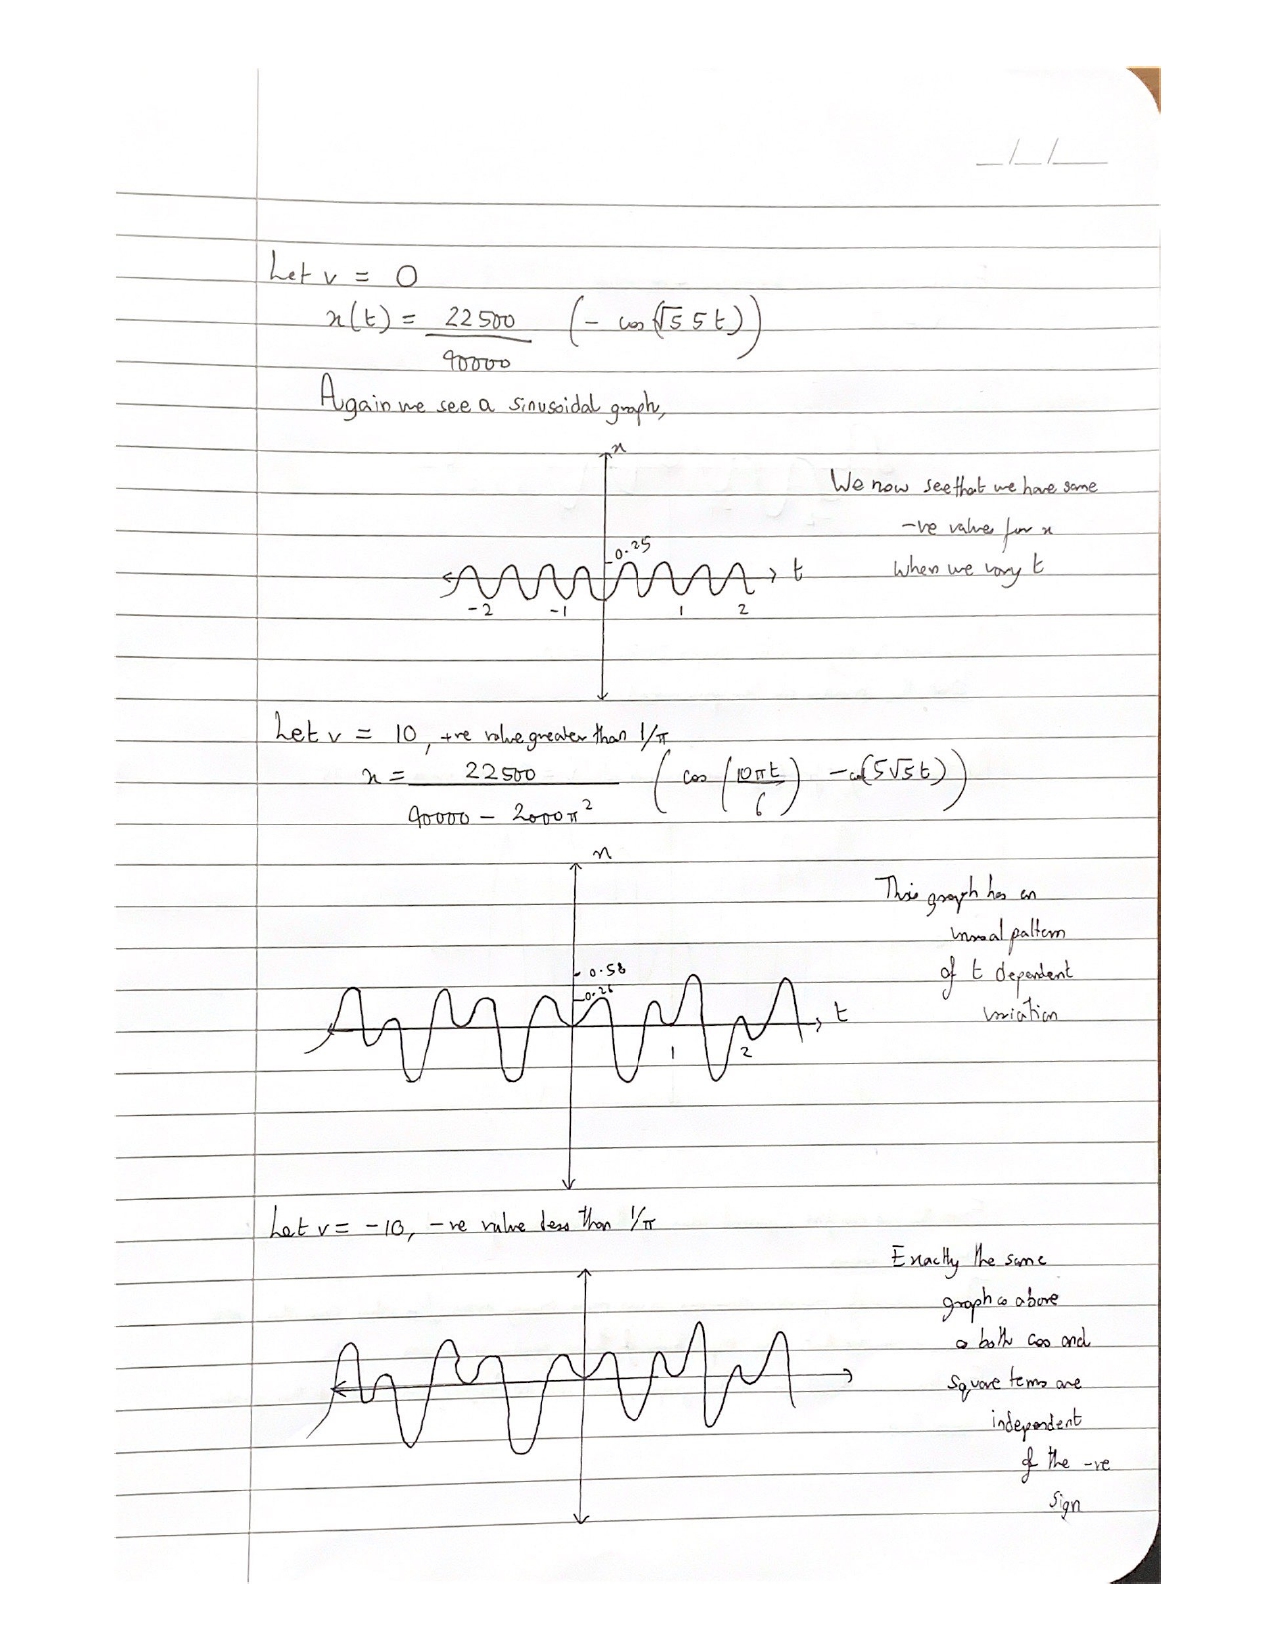 _/_/_
Let v = 0
x(t) = 22500/90000 (- cos(√5 5t))
Again we see a sinusoidal graph,
x
0.25
t
-2 -1 1 2
We now see that we have some
-ve values for x
when we vary t
Let v = 10, +ve value greater than 1/π
x = 22500/(90000 - 2000π²) (cos(10πt/6) - cos(5√5t))
x
0.58
0.26
t
1 2
This graph has an
unusual pattern
of t dependent
variation
Let v = -10, -ve value less than 1/π
Exactly the same
graph as above
as both cos and
square terms are
independent
of the -ve
sign